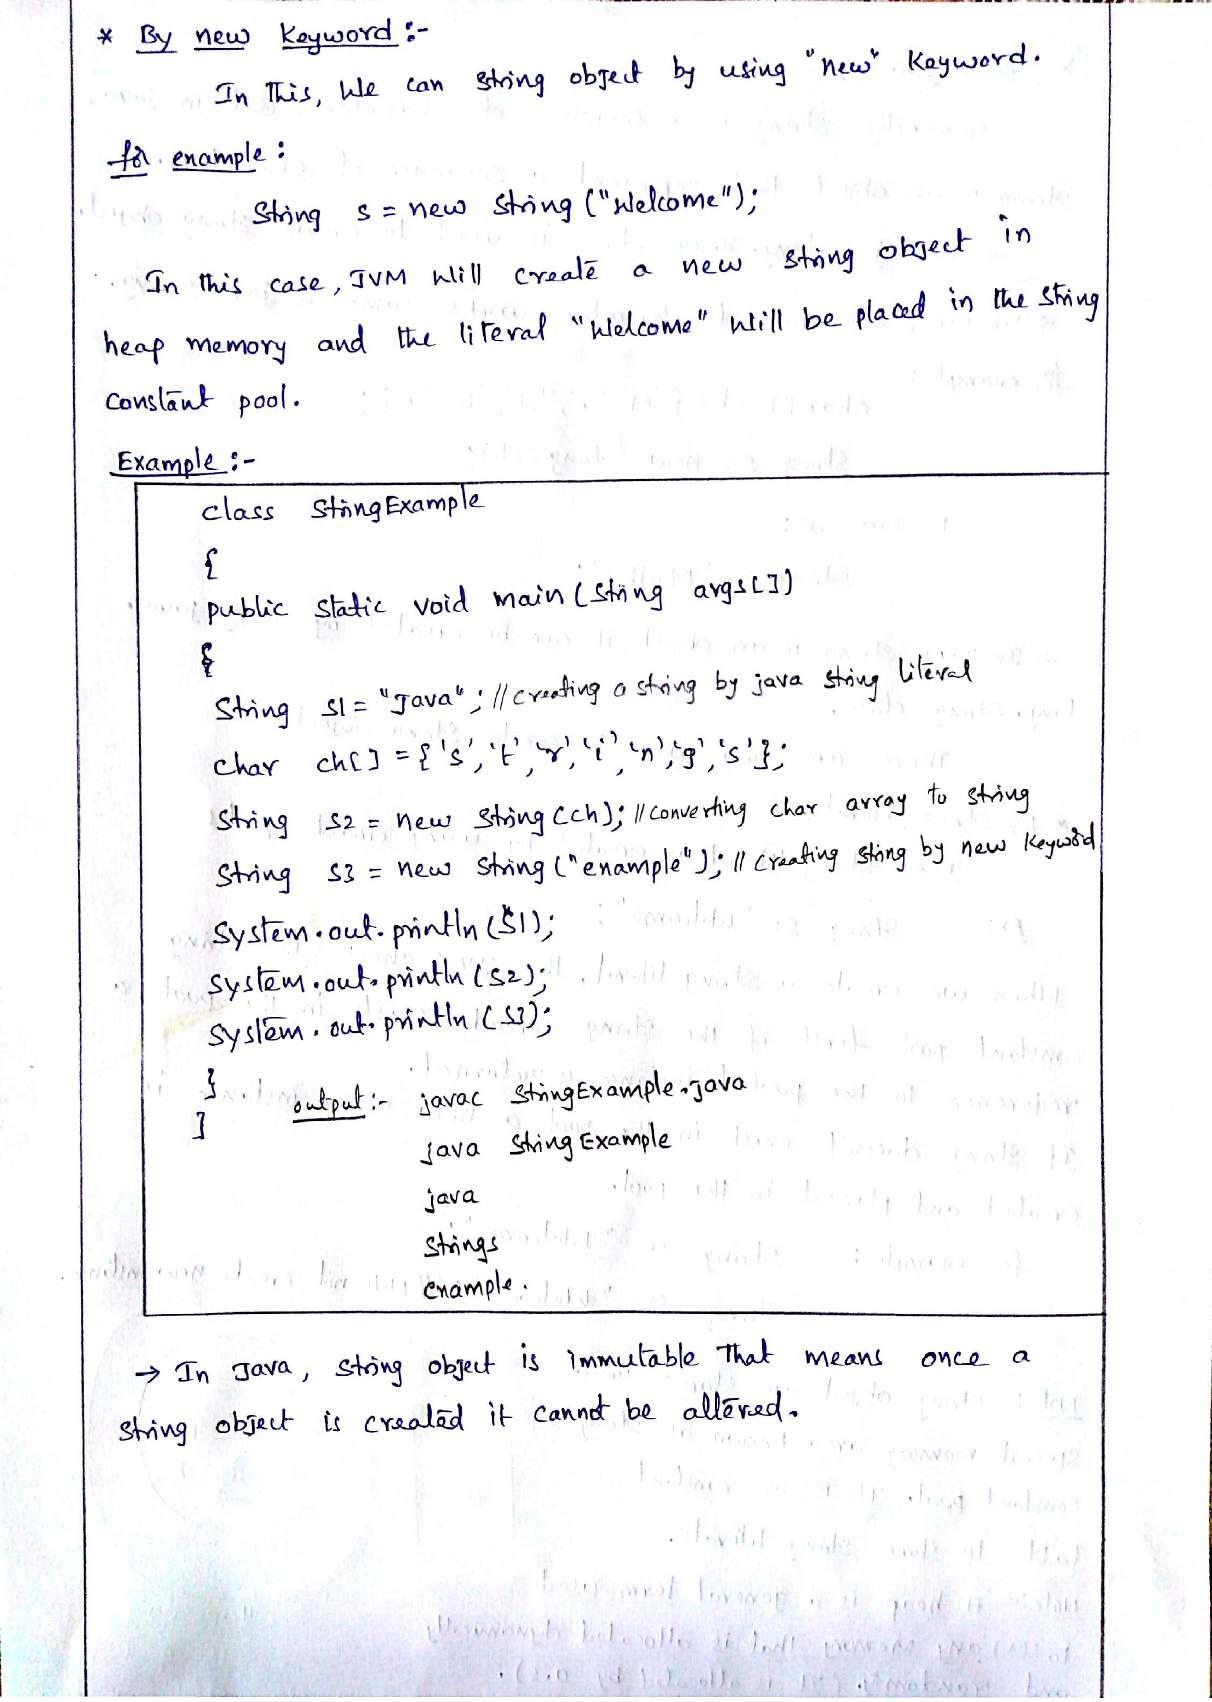 * By new Keyword :-
In This, We can string object by using "new" Keyword.
for example :
String s = new String ("Welcome");
In this case, JVM will create a new string object in
heap memory and the literal "Welcome" will be placed in the string
constant pool.
Example :-
class StringExample
{
public static void main (String args[])
{
String s1 = "Java" ; // creating a string by java string literal
char ch[] = {'s','t','r','i','n','g','s'};
String s2 = new String (ch); // converting char array to string
String s3 = new String ("example"); // creating string by new keyword
System.out.println (S1);
System.out.println (s2);
System.out.println (s3);
}
output :- javac StringExample.java
}
java StringExample
java
Strings
example.
→ In Java, string object is immutable That means once a
string object is created it cannot be altered.